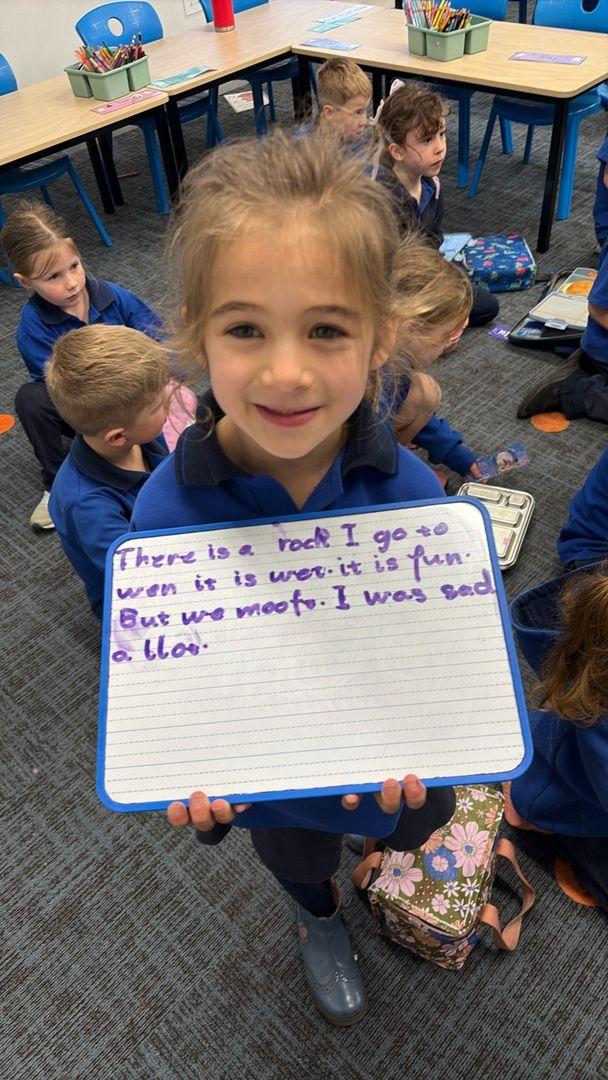 There is a rock I go to
wen it is wet. it is fun.
But we mooft. I was sad
a llot.